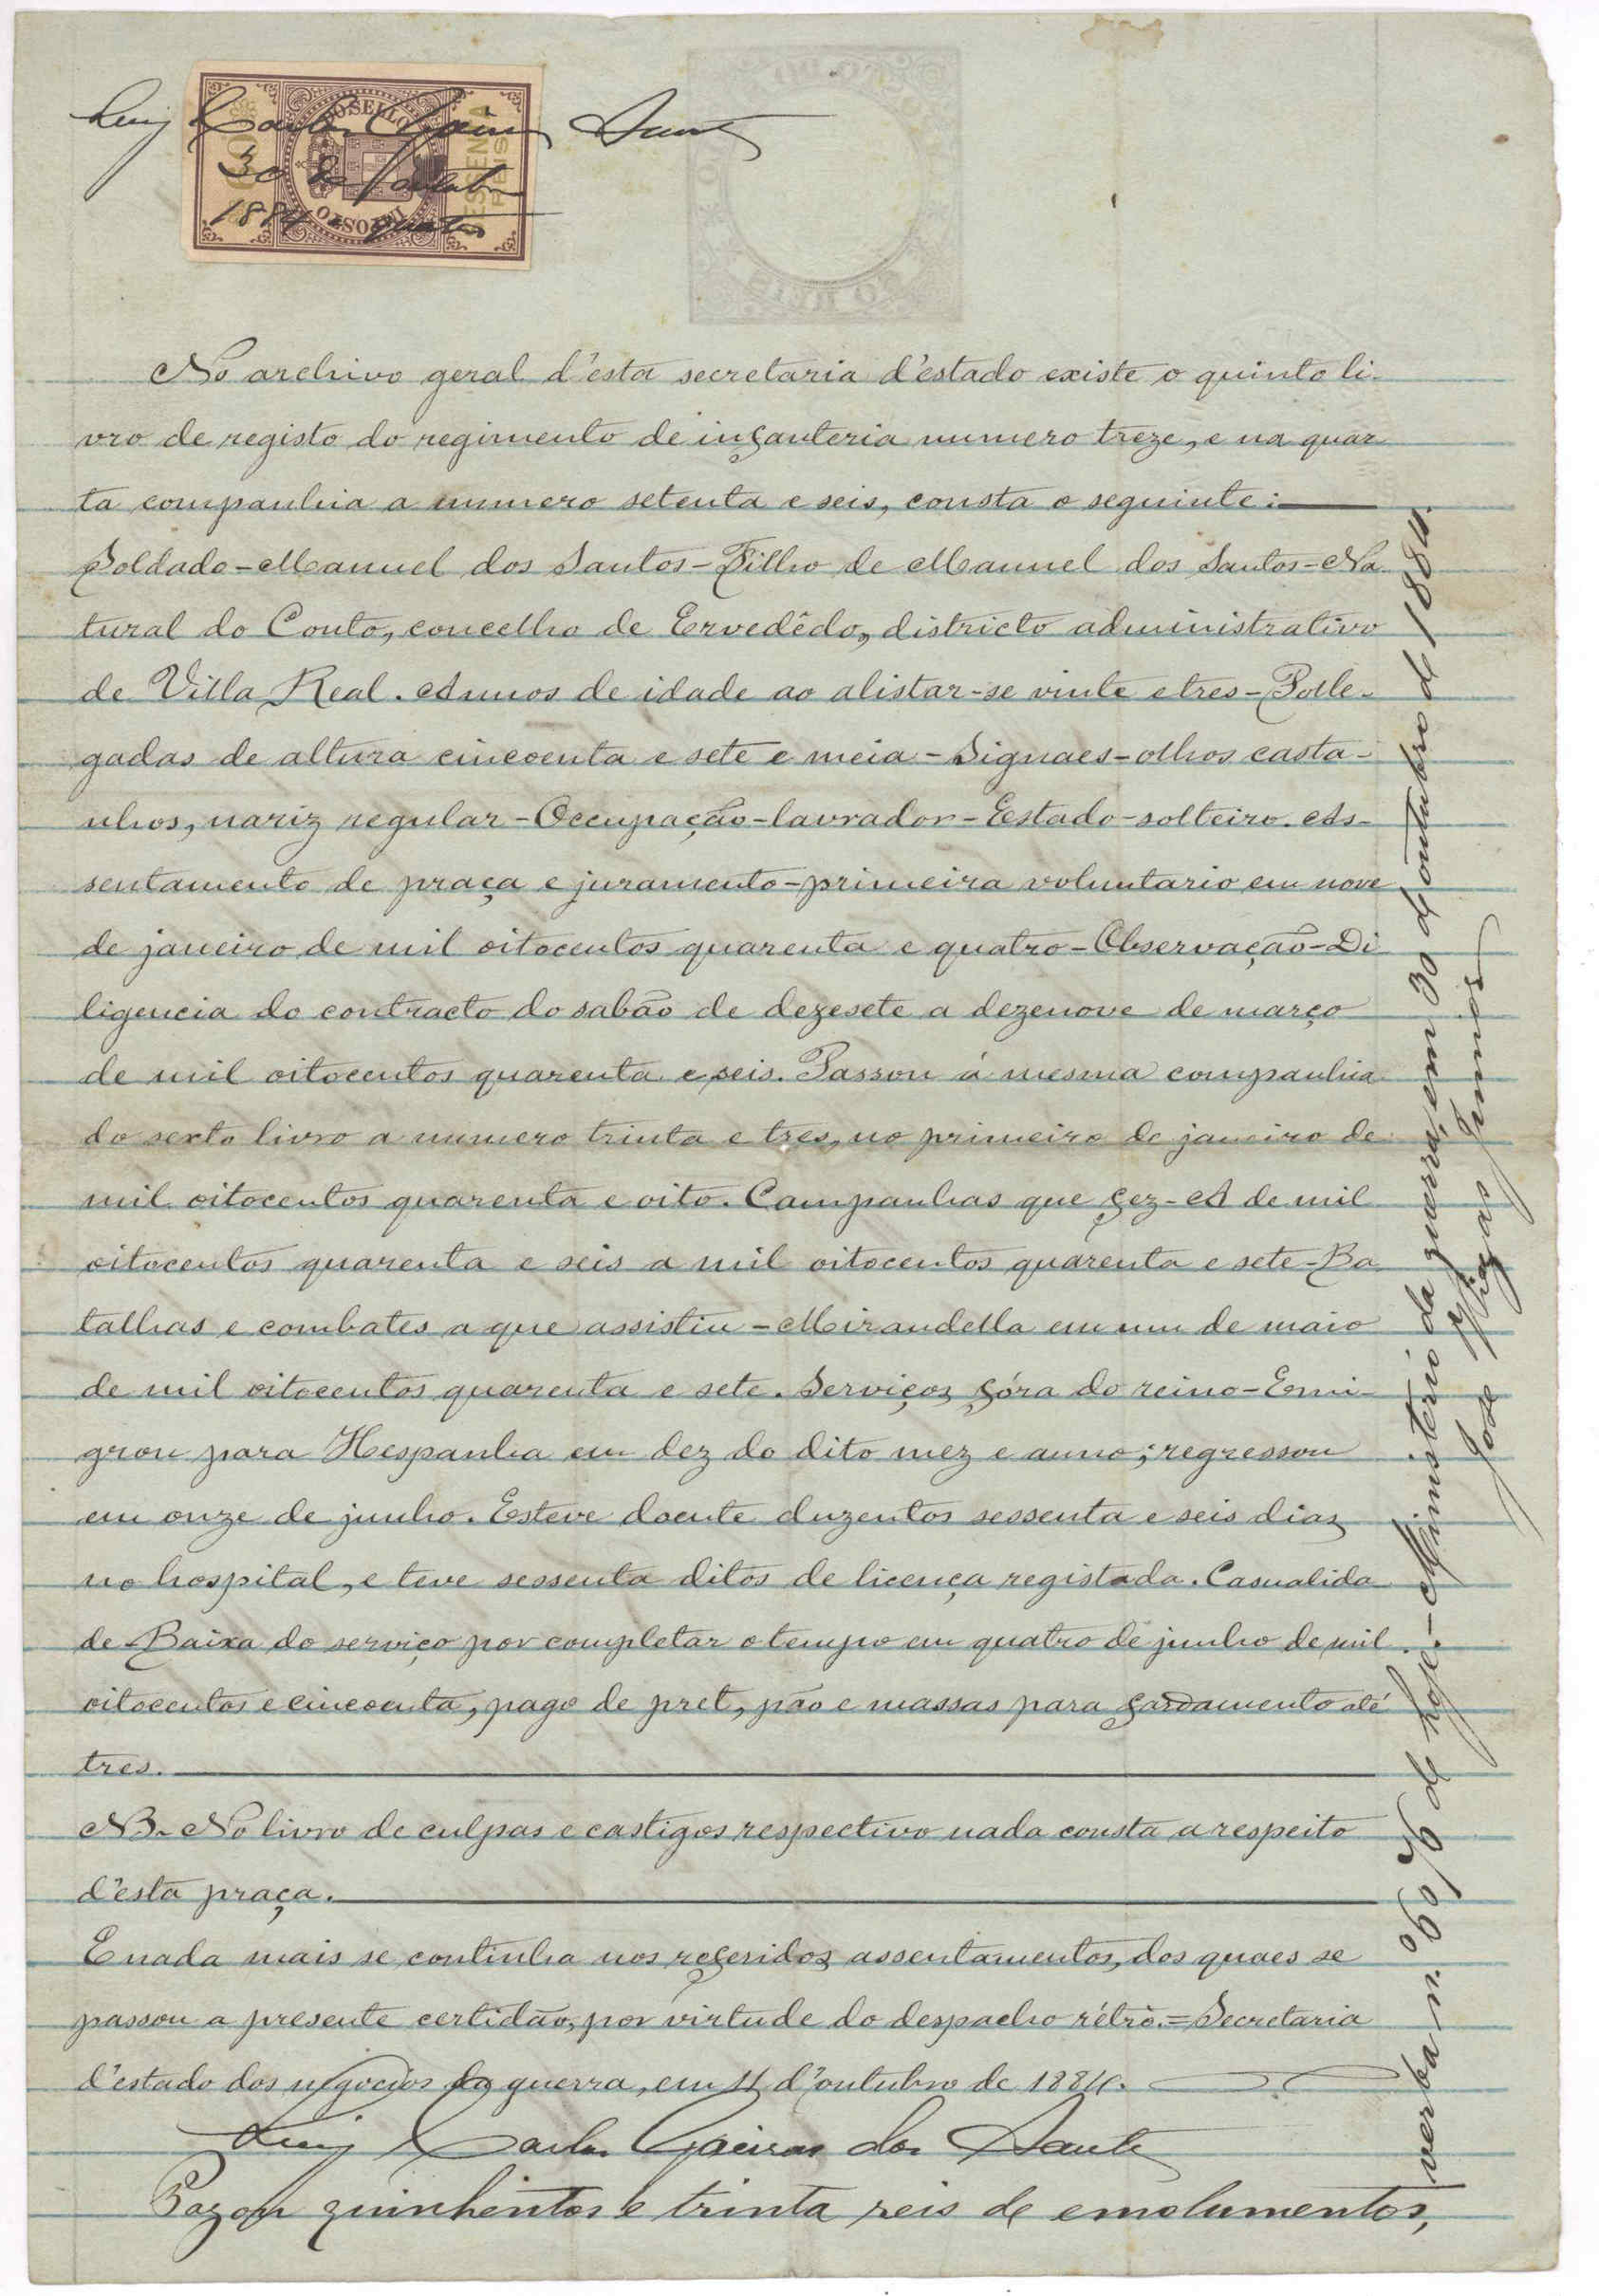 Luiz Carlos Gaeiras Santos
30 de
1884 quatro
IMPOSTO DO SELLO
SESSENTA
REIS
No archivo geral d'esta secretaria d'estado existe o quinto li-
vro de registo do regimento de infanteria numero treze, e na quar
ta companhia a numero setenta e seis, consta o seguinte:
Soldado - Manuel dos Santos - Filho de Manuel dos Santos - Na
tural do Couto, concelho de Ervedêdo, districto administrativo
de Villa Real. Annos de idade ao alistar-se vinte e tres - Polle-
gadas de altura cincoenta e sete e meia - Signaes - olhos casta-
nhos, nariz regular - Occupação - lavrador - Estado - solteiro. As-
sentamento de praça e juramento - primeira voluntario em nove
de janeiro de mil oitocentos quarenta e quatro - Observação - Di
ligencia do contracto do sabão de dezesete a dezenove de março
de mil oitocentos quarenta e seis. Passou á mesma companhia
do sexto livro a numero trinta e tres, no primeiro de janeiro de
mil oitocentos quarenta e oito. Campanhas que fez - A de mil
oitocentos quarenta e seis a mil oitocentos quarenta e sete - Ba
talhas e combates a que assistiu - Mirandella em um de maio
de mil oitocentos quarenta e sete. Serviços fóra do reino - Emi-
grou para Hespanha em dez do dito mez e anno; regressou
em onze de junho. Esteve doente duzentos sessenta e seis dias
no hospital, e teve sessenta ditos de licença registada. Casualida
de - Baixa do serviço por completar o tempo em quatro de junho de mil
oitocentos e cincoenta, pago de pret, pão e massas para fardamento até
tres.
NB - No livro de culpas e castigos respectivo nada consta a respeito
d'esta praça.
E nada mais se continha nos referidos assentamentos, dos quaes se
passou a presente certidão, por virtude do despacho rétro. = Secretaria
d'estado dos negocios da guerra, em 11 d'outubro de 1884.
Luiz Carlos Gaeiras dos Santos
Pagou quinhentos e trinta reis de emolumentos,
verba n.º 60 de hoje. - Ministerio da guerra, em 30 d'outubro de 1884.
José Junior